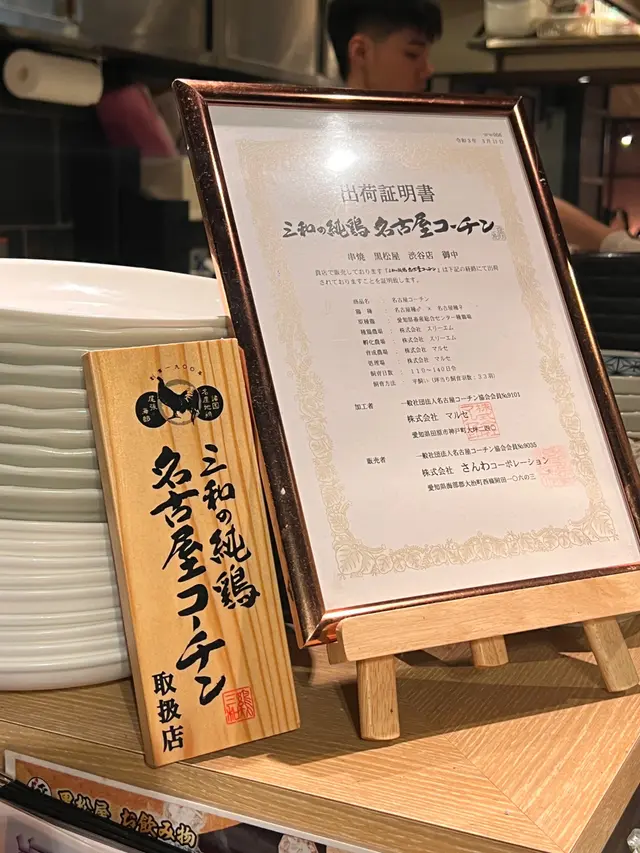 出荷証明書
三和の純鶏 名古屋コーチン
串焼 黒松屋 渋谷店 御中
貴店で販売しております「三和の純鶏 名古屋コーチン」は下記の経路にて出荷
されておりますことを証明致します。
商品名 : 名古屋コーチン
鶏種 : 名古屋種♂ × 名古屋種♀
原種鶏 : 愛知県畜産総合センター種鶏場
種鶏農場 : 株式会社 スリーエム
孵化農場 : 株式会社 スリーエム
育成農場 : 株式会社 マルセ
処理場 : 株式会社 マルセ
飼育日数 : 110〜140日令
飼育方法 : 平飼い(坪当り飼育羽数:33羽)
加工者 一般社団法人名古屋コーチン協会会員№9101
株式会社 マルセ
愛知県田原市神戸町大坪二四〇
販売者 一般社団法人名古屋コーチン協会会員№9035
株式会社 さんわコーポレーション
愛知県海部郡大治町西條附田一〇六の三
創業一九〇〇年
諸国名産地鶏
尾張海部
三和の純鶏
名古屋コーチン
取扱店
黒松屋 お飲み物